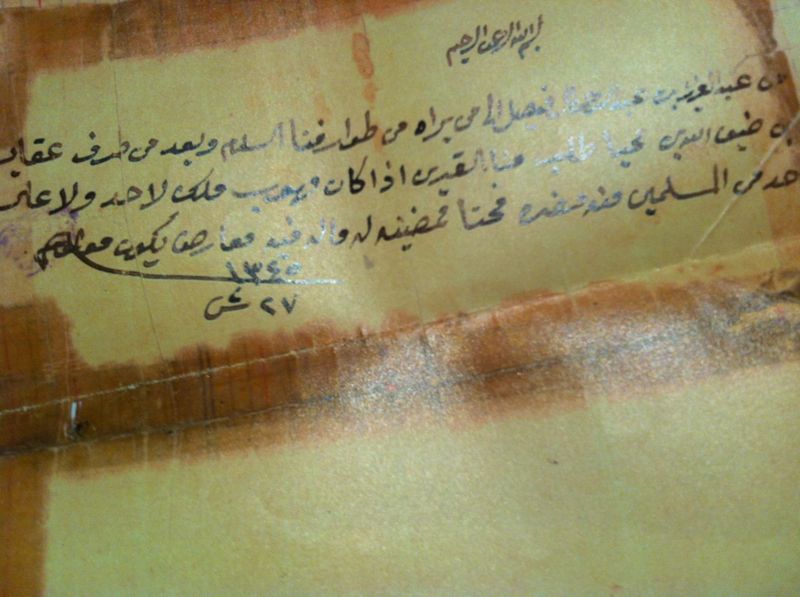 بسم الله الرحمن الرحيم
من عبدالعزيز بن عبدالرحمن الفيصل الى من يراه من طوارفنا السلام وبعد من طرف عقاب
بن ضيف الله طلب منا اذا كان مهوب ملك لاحد ولا على
احد من المسلمين منه مضره فحنا ممضينه له والا فيه معارض يكون معلوم
١٣٤٥
٢٧ ش